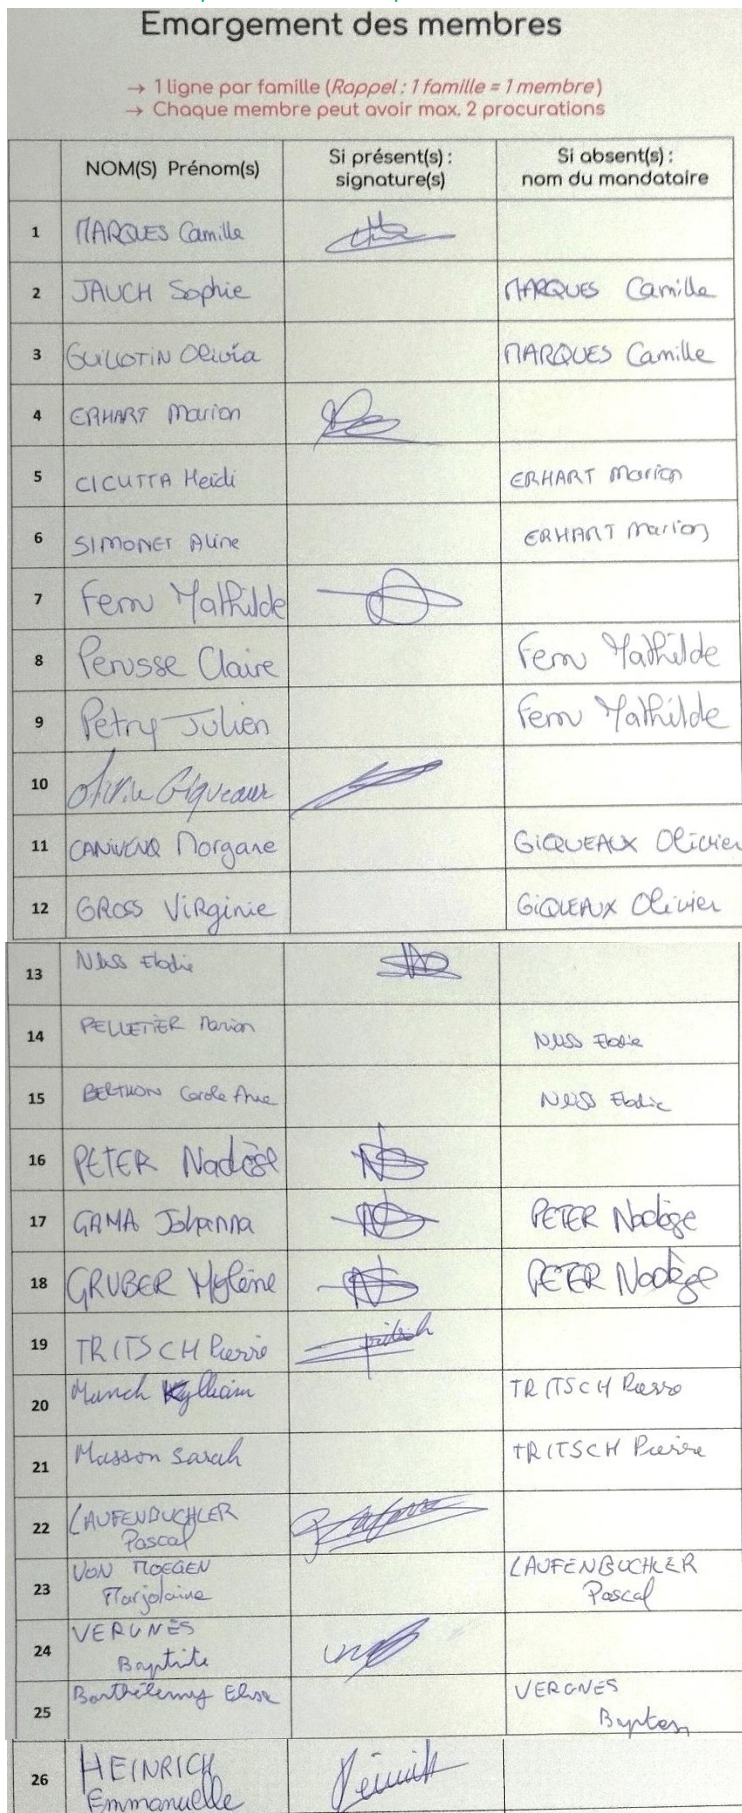 Emargement des membres
→ 1 ligne par famille (Rappel : 1 famille = 1 membre)
→ Chaque membre peut avoir max. 2 procurations
NOM(S) Prénom(s) Si présent(s) : signature(s) Si absent(s) : nom du mandataire
1 MARQUES Camille
2 JAUCH Sophie MARQUES Camille
3 GUILLOTIN Olivia MARQUES Camille
4 ERHART Marion
5 CICUTTA Heidi ERHART Marion
6 SIMONET Aline ERHART Marion
7 Mathilde
8 Perusse Claire Mathilde
9 Petry Julien Mathilde
10 Giqueaux
11 Morgane GIQUEAUX Olivier
12 GROSS Virginie GIQUEAUX Olivier
13 Elodie
14 PELLETIER Marion Elodie
15 BERTHON Carole Anne Elodie
16 PETER Nadège
17 GAMA Johanna PETER Nadège
18 GRUBER Mylène PETER Nadège
19 TRITSCH Pierre
20 Munch TRITSCH Pierre
21 Masson Sarah TRITSCH Pierre
22 LAUFENBUCHLER
Pascal
23 VON MOEGEN LAUFENBUCHLER
Marjolaine Pascal
24 VERGNES
Baptiste
25 Barthélemy Elise VERGNES
26 HEINRICH
Emmanuelle